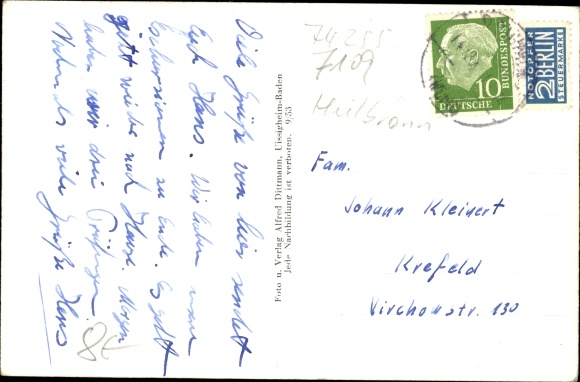 Viele Grüße von hier sendet
Euch Hans. Wir haben
Exkursionen zu Ende. Es geht
jetzt wieder nach Hause. Morgen
haben wir drei Prüfungen.
Nochmals viele Grüße Hans
78
Foto u. Verlag Alfred Dittmann, Uissigheim-Baden
Jede Nachbildung ist verboten. 9/53
74255
7109
Heilbronn
10
DEUTSCHE
BUNDESPOST
NOTOPFER
2 BERLIN
STEUERMARKE
Fam.
Johann Kleinert
Krefeld
Virchowstr. 130